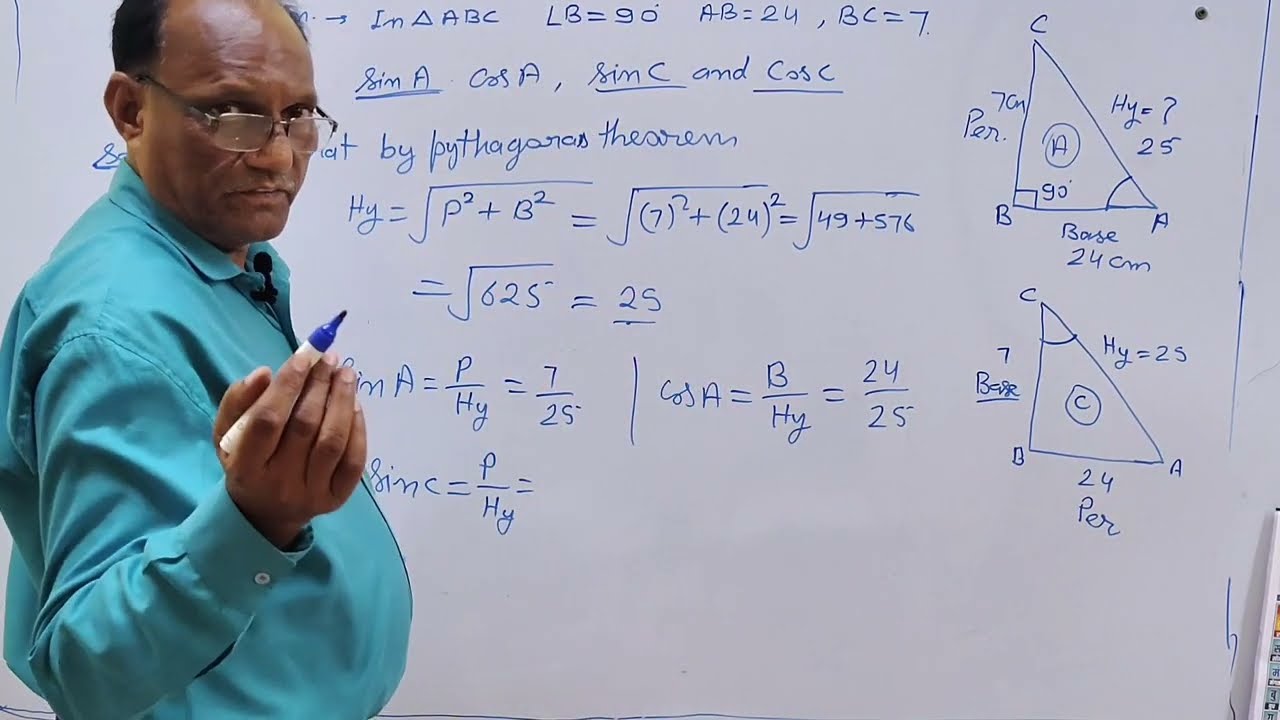 → In △ ABC ∠B = 90° AB = 24 , BC = 7.
sin A Cos A , sin C and Cos C
by pythagoras theorem
Hy = √P² + B² = √(7)² + (24)² = √49 + 576
= √625 = 25
sin A = P/Hy = 7/25 | Cos A = B/Hy = 24/25
sin C = P/Hy =
C
7cm
Per.
Hy = ?
25
A
90°
B
A
Base
24 cm
C
7
Base
Hy = 25
C
B
A
24
Per